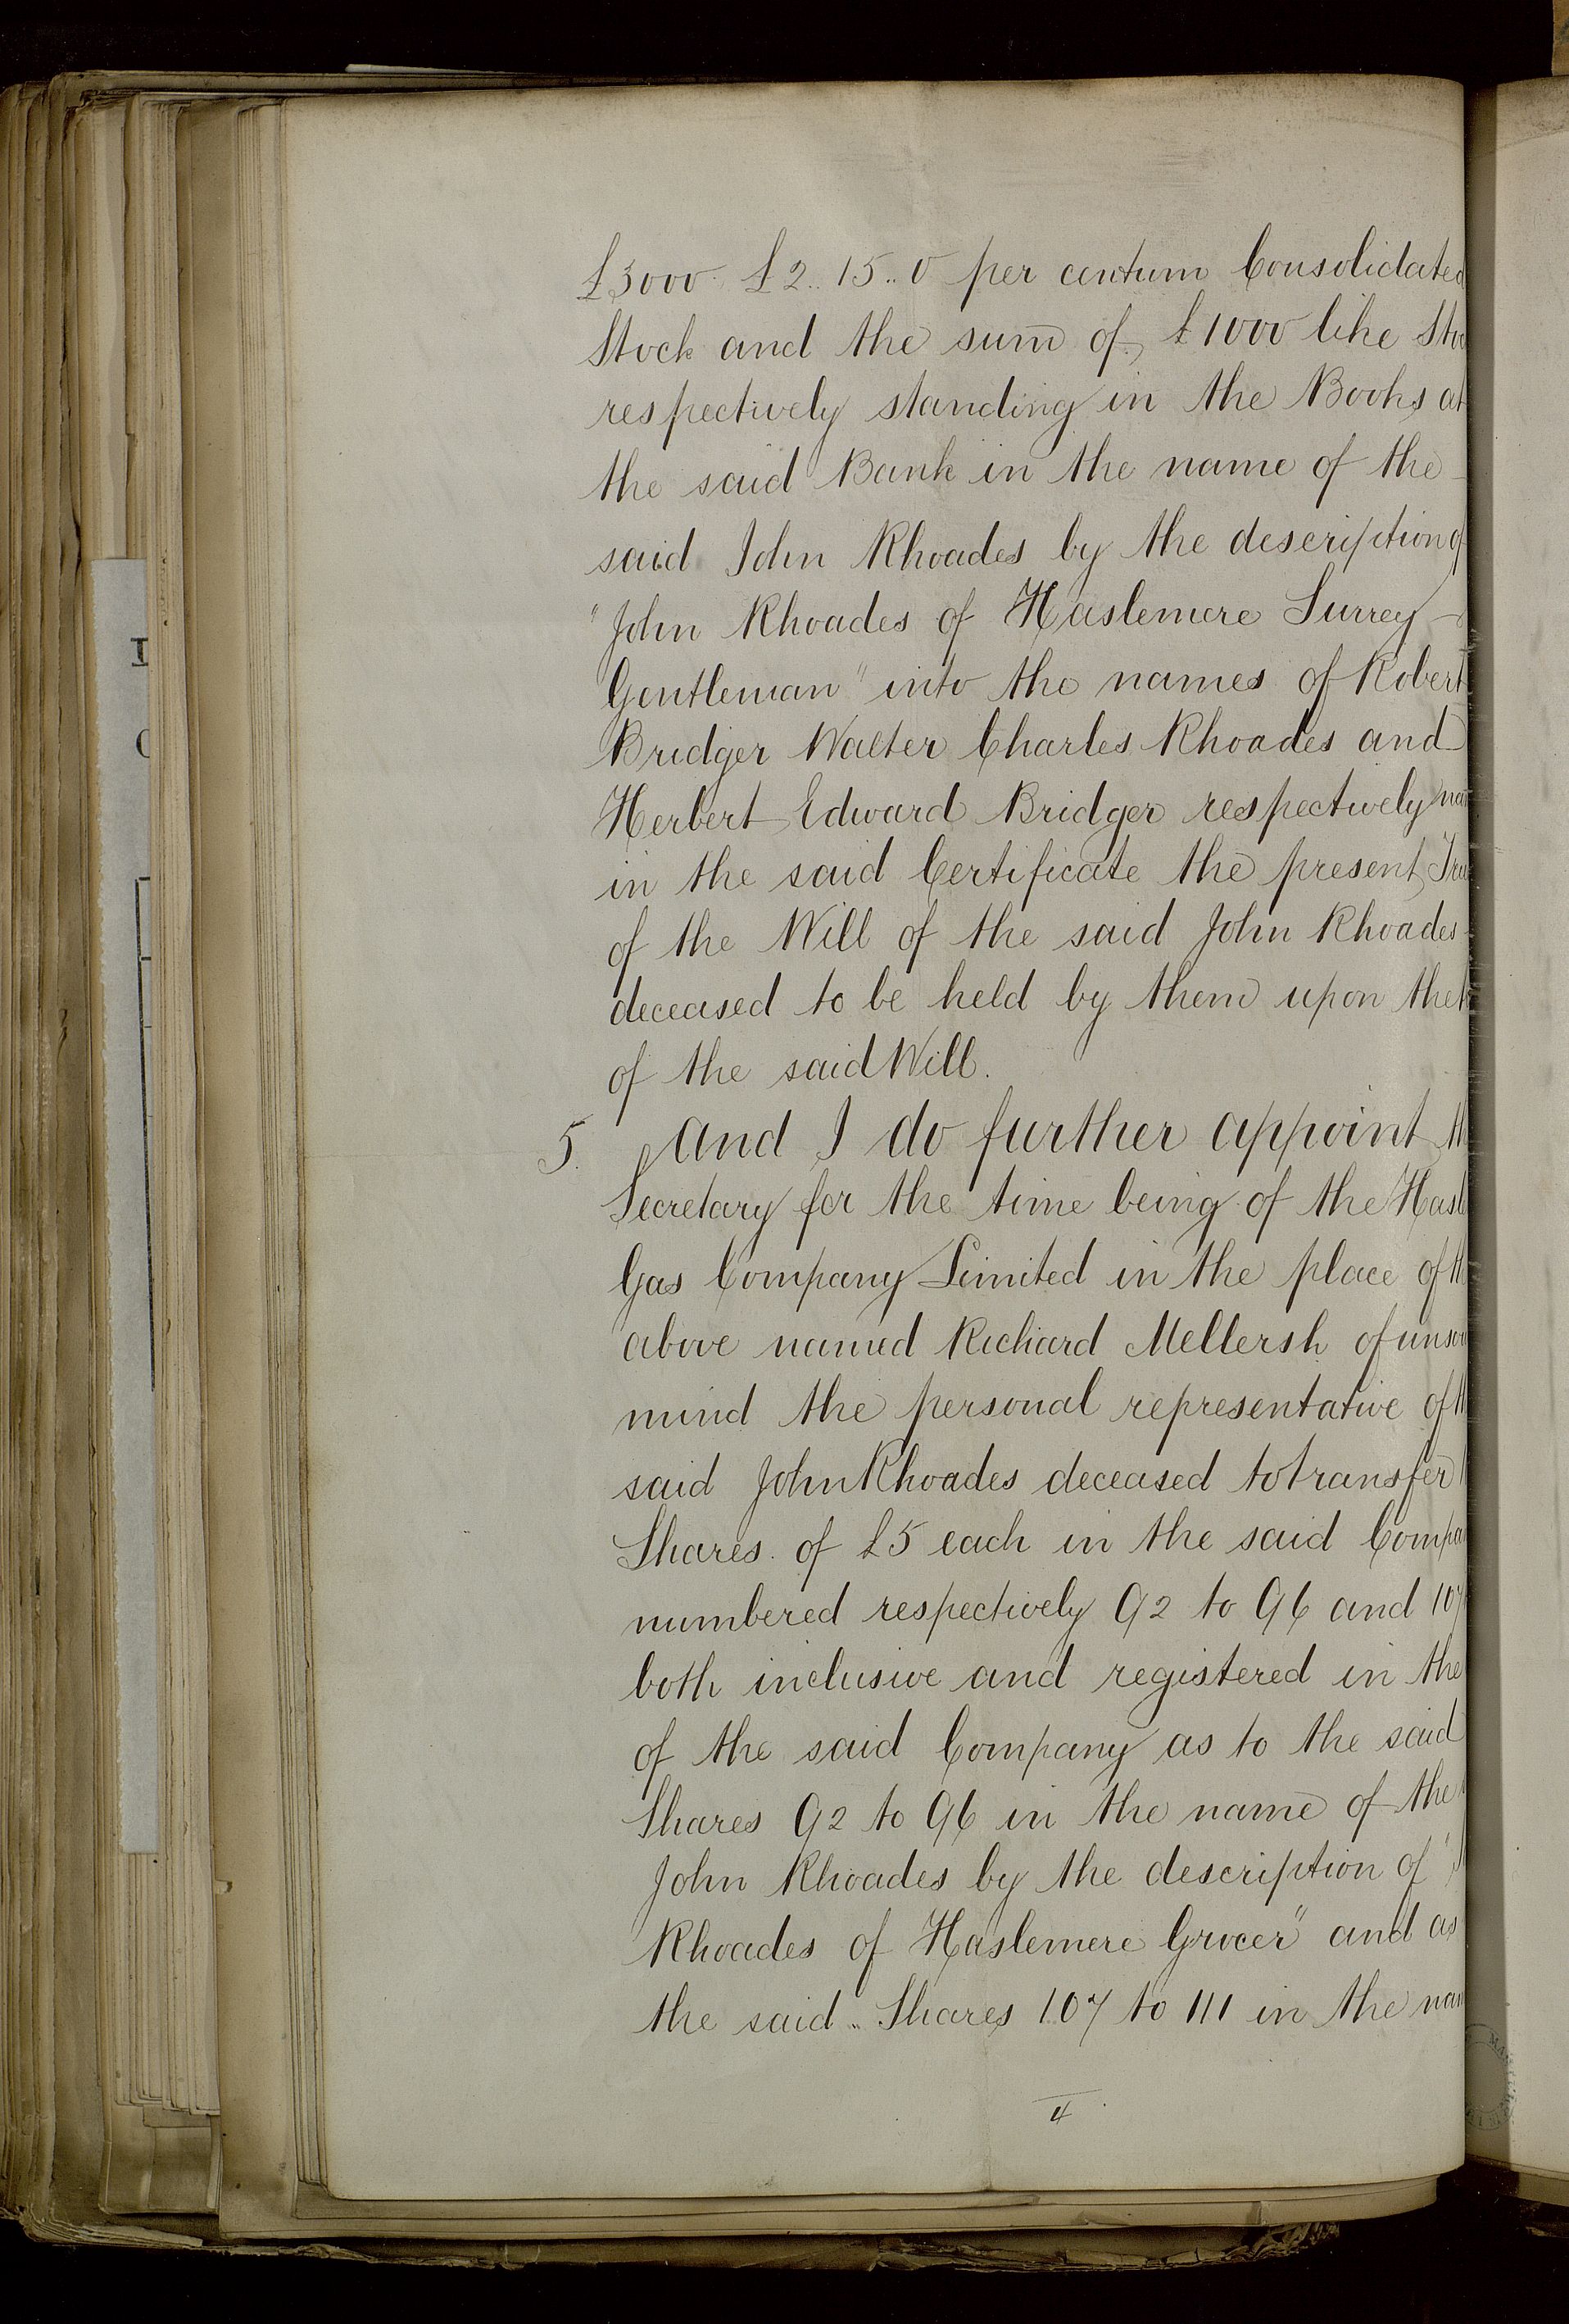 £3000 £2..15..0 per centum Consolidated
Stock and the sum of £1000 like Sto
respectively standing in the Books at
the said Bank in the name of the
said John Rhoades by the description of
"John Rhoades of Haslemere Surrey -
Gentleman" into the names of Robert
Bridger Walter Charles Rhoades and
Herbert Edward Bridger respectively na
in the said Certificate the present Tru
of the Will of the said John Rhoades
deceased to be held by them upon the
of the said Will.
5. And I do further appoint th
Secretary for the time being of the Hasl
Gas Company Limited in the place of th
above named Richard Mellersh of unsou
mind the personal representative of th
said John Rhoades deceased to transfer
Shares of £5 each in the said Compa
numbered respectively 92 to 96 and 107
both inclusive and registered in the
of the said Company as to the said
Shares 92 to 96 in the name of the
John Rhoades by the description of "
Rhoades of Haslemere Grocer" and as
the said .. Shares 107 to 111 in the nam
4